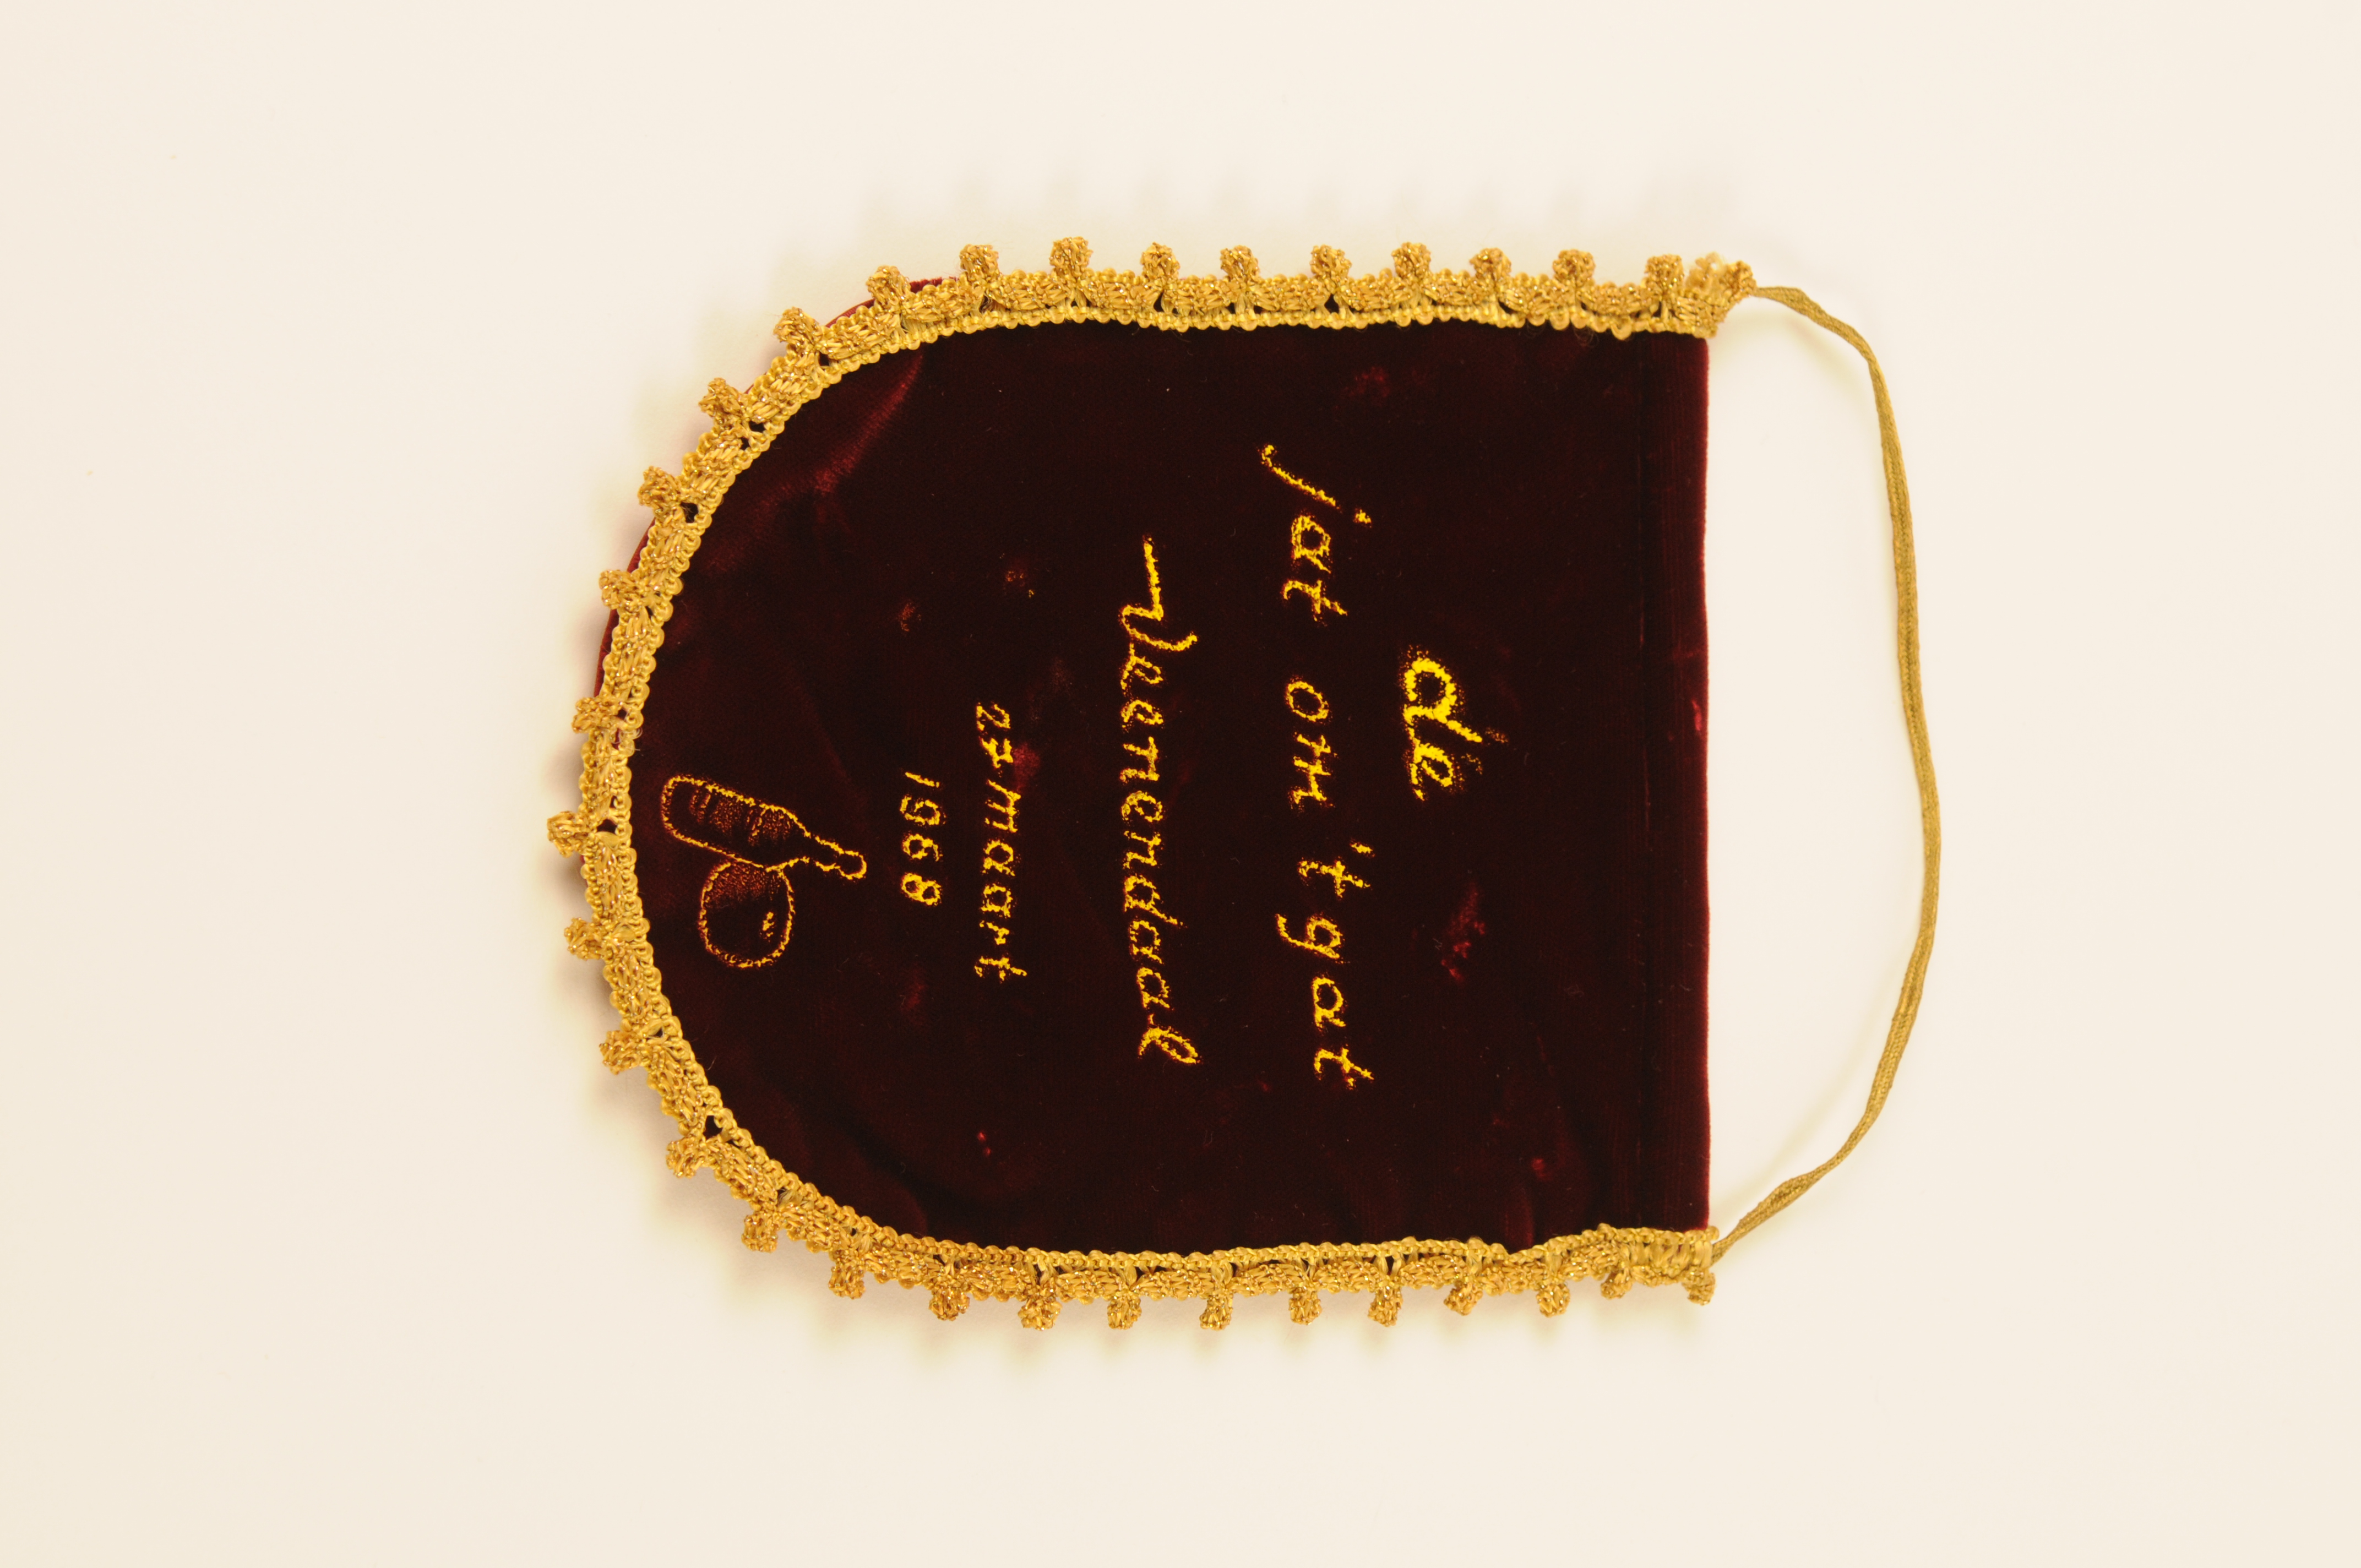 de
jat om 't gat
Veenendaal
27 maart
1968